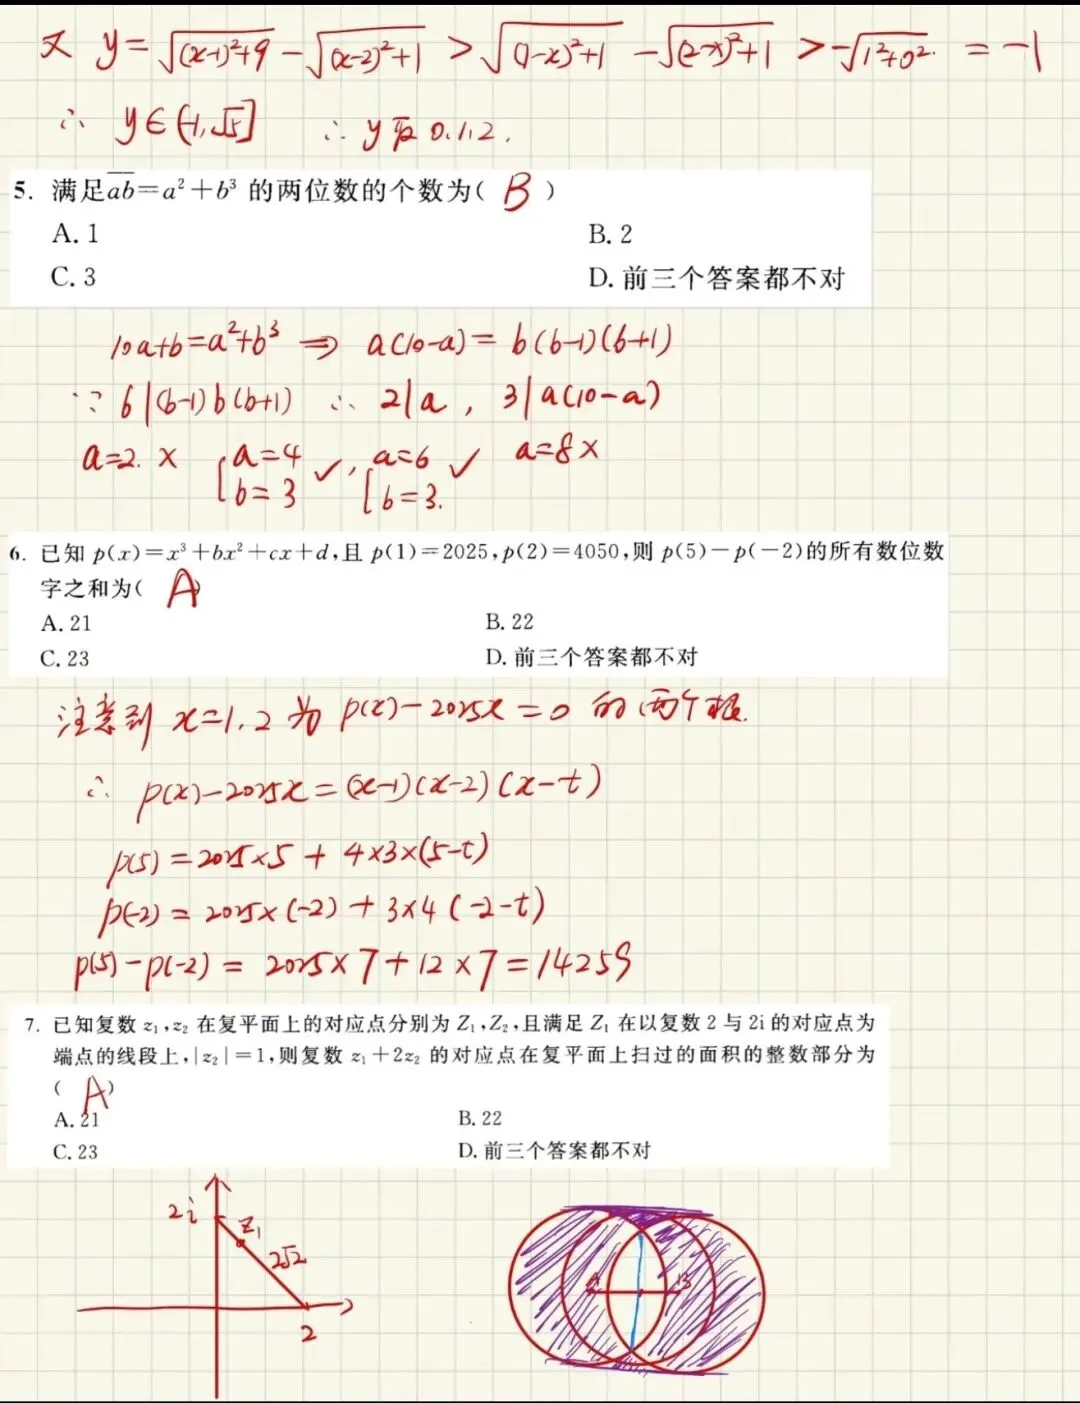 又 y=√((x-1)²+9) - √((x-2)²+1) > √((1-x)²+1) - √((2-x)²+1) > -√(1²+0²) = -1
∴ y∈(-1,√5] ∴ y取 0.1.2.
5. 满足a̅b̅=a²+b³ 的两位数的个数为( B )
A. 1 B. 2
C. 3 D. 前三个答案都不对
10a+b=a²+b³ ⇒ a(10-a)= b(b-1)(b+1)
∵ 6|(b-1)b(b+1) ∴ 2|a , 3|a(10-a)
a=2. × {a=4 b=3 ✓, {a=6 b=3. ✓ a=8 ×
6. 已知 p(x)=x³+bx²+cx+d,且 p(1)=2025,p(2)=4050,则 p(5)-p(-2)的所有数位数
字之和为( A )
A. 21 B. 22
C. 23 D. 前三个答案都不对
注意到 x=1.2 为 p(x)-2025x=0 的两个根.
∴ p(x)-2025x=(x-1)(x-2)(x-t)
p(5)=2025×5 + 4×3×(5-t)
p(-2) = 2025×(-2) + 3×4 (-2-t)
p(5)-p(-2) = 2025×7+12×7=14259
7. 已知复数 z₁,z₂ 在复平面上的对应点分别为 Z₁,Z₂,且满足 Z₁ 在以复数 2 与 2i 的对应点为
端点的线段上,|z₂|=1,则复数 z₁+2z₂ 的对应点在复平面上扫过的面积的整数部分为
( A )
A. 21 B. 22
C. 23 D. 前三个答案都不对
2i
Z₁
2√2
2
A B